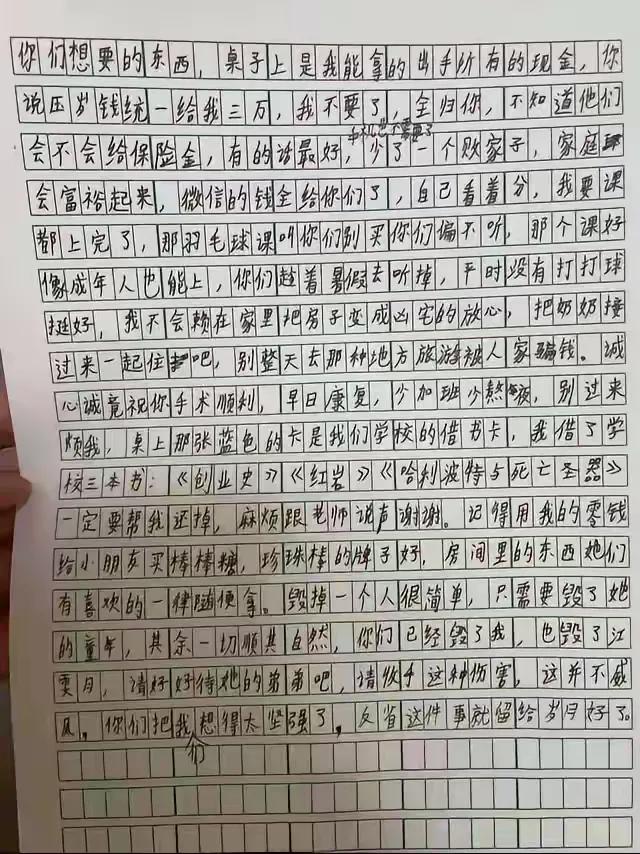 你们想要的东西，桌子上是我能拿的出手所有的现金，你
说压岁钱统一给我三万，我不要了，全归你，不知道他们
手机也不需要了
会不会给保险金，有的话最好，少了一个败家子，家庭
会富裕起来，微信的钱全给你们了，自己看着分，我要课
都上完了，那羽毛球课叫你们别买你们偏不听，那个课好
像成年人也能上，你们趁着暑假去听掉，平时没有打打球
挺好，我不会赖在家里把房子变成凶宅的放心，把奶奶接
过来一起住吧，别整天去那种地方旅游被人家骗钱。诚
心诚竟祝你手术顺利，早日康复，少加班少熬夜，别过来
烦我，桌上那张蓝色的卡是我们学校的借书卡，我借了学
校三本书：《创业史》《红岩》《哈利波特与死亡圣器》
一定要帮我还掉，麻烦跟老师说声谢谢。记得用我的零钱
给小朋友买棒棒糖，珍珠棒的牌子好，房间里的东西她们
有喜欢的一律随便拿。毁掉一个人很简单，只需要毁了她
的童年，其余一切顺其自然，你们已经毁了我，也毁了江
雯月，请好好待她的弟弟吧，请收手这种伤害，这并不威
风，你们把我们想得太坚强了，反省这件事就留给岁月好了。